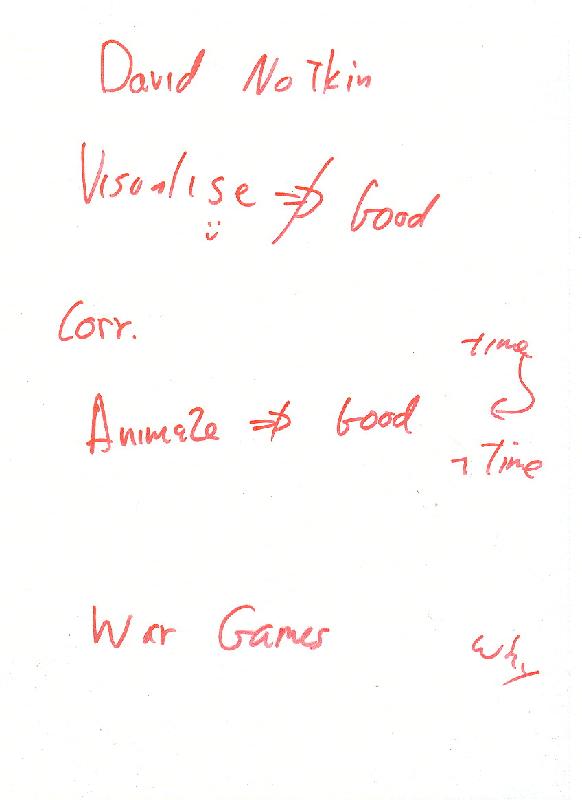 David Notkin
Visualise ⇏ Good
Corr.
time
Animate ⇏ Good
¬ Time
War Games
Why